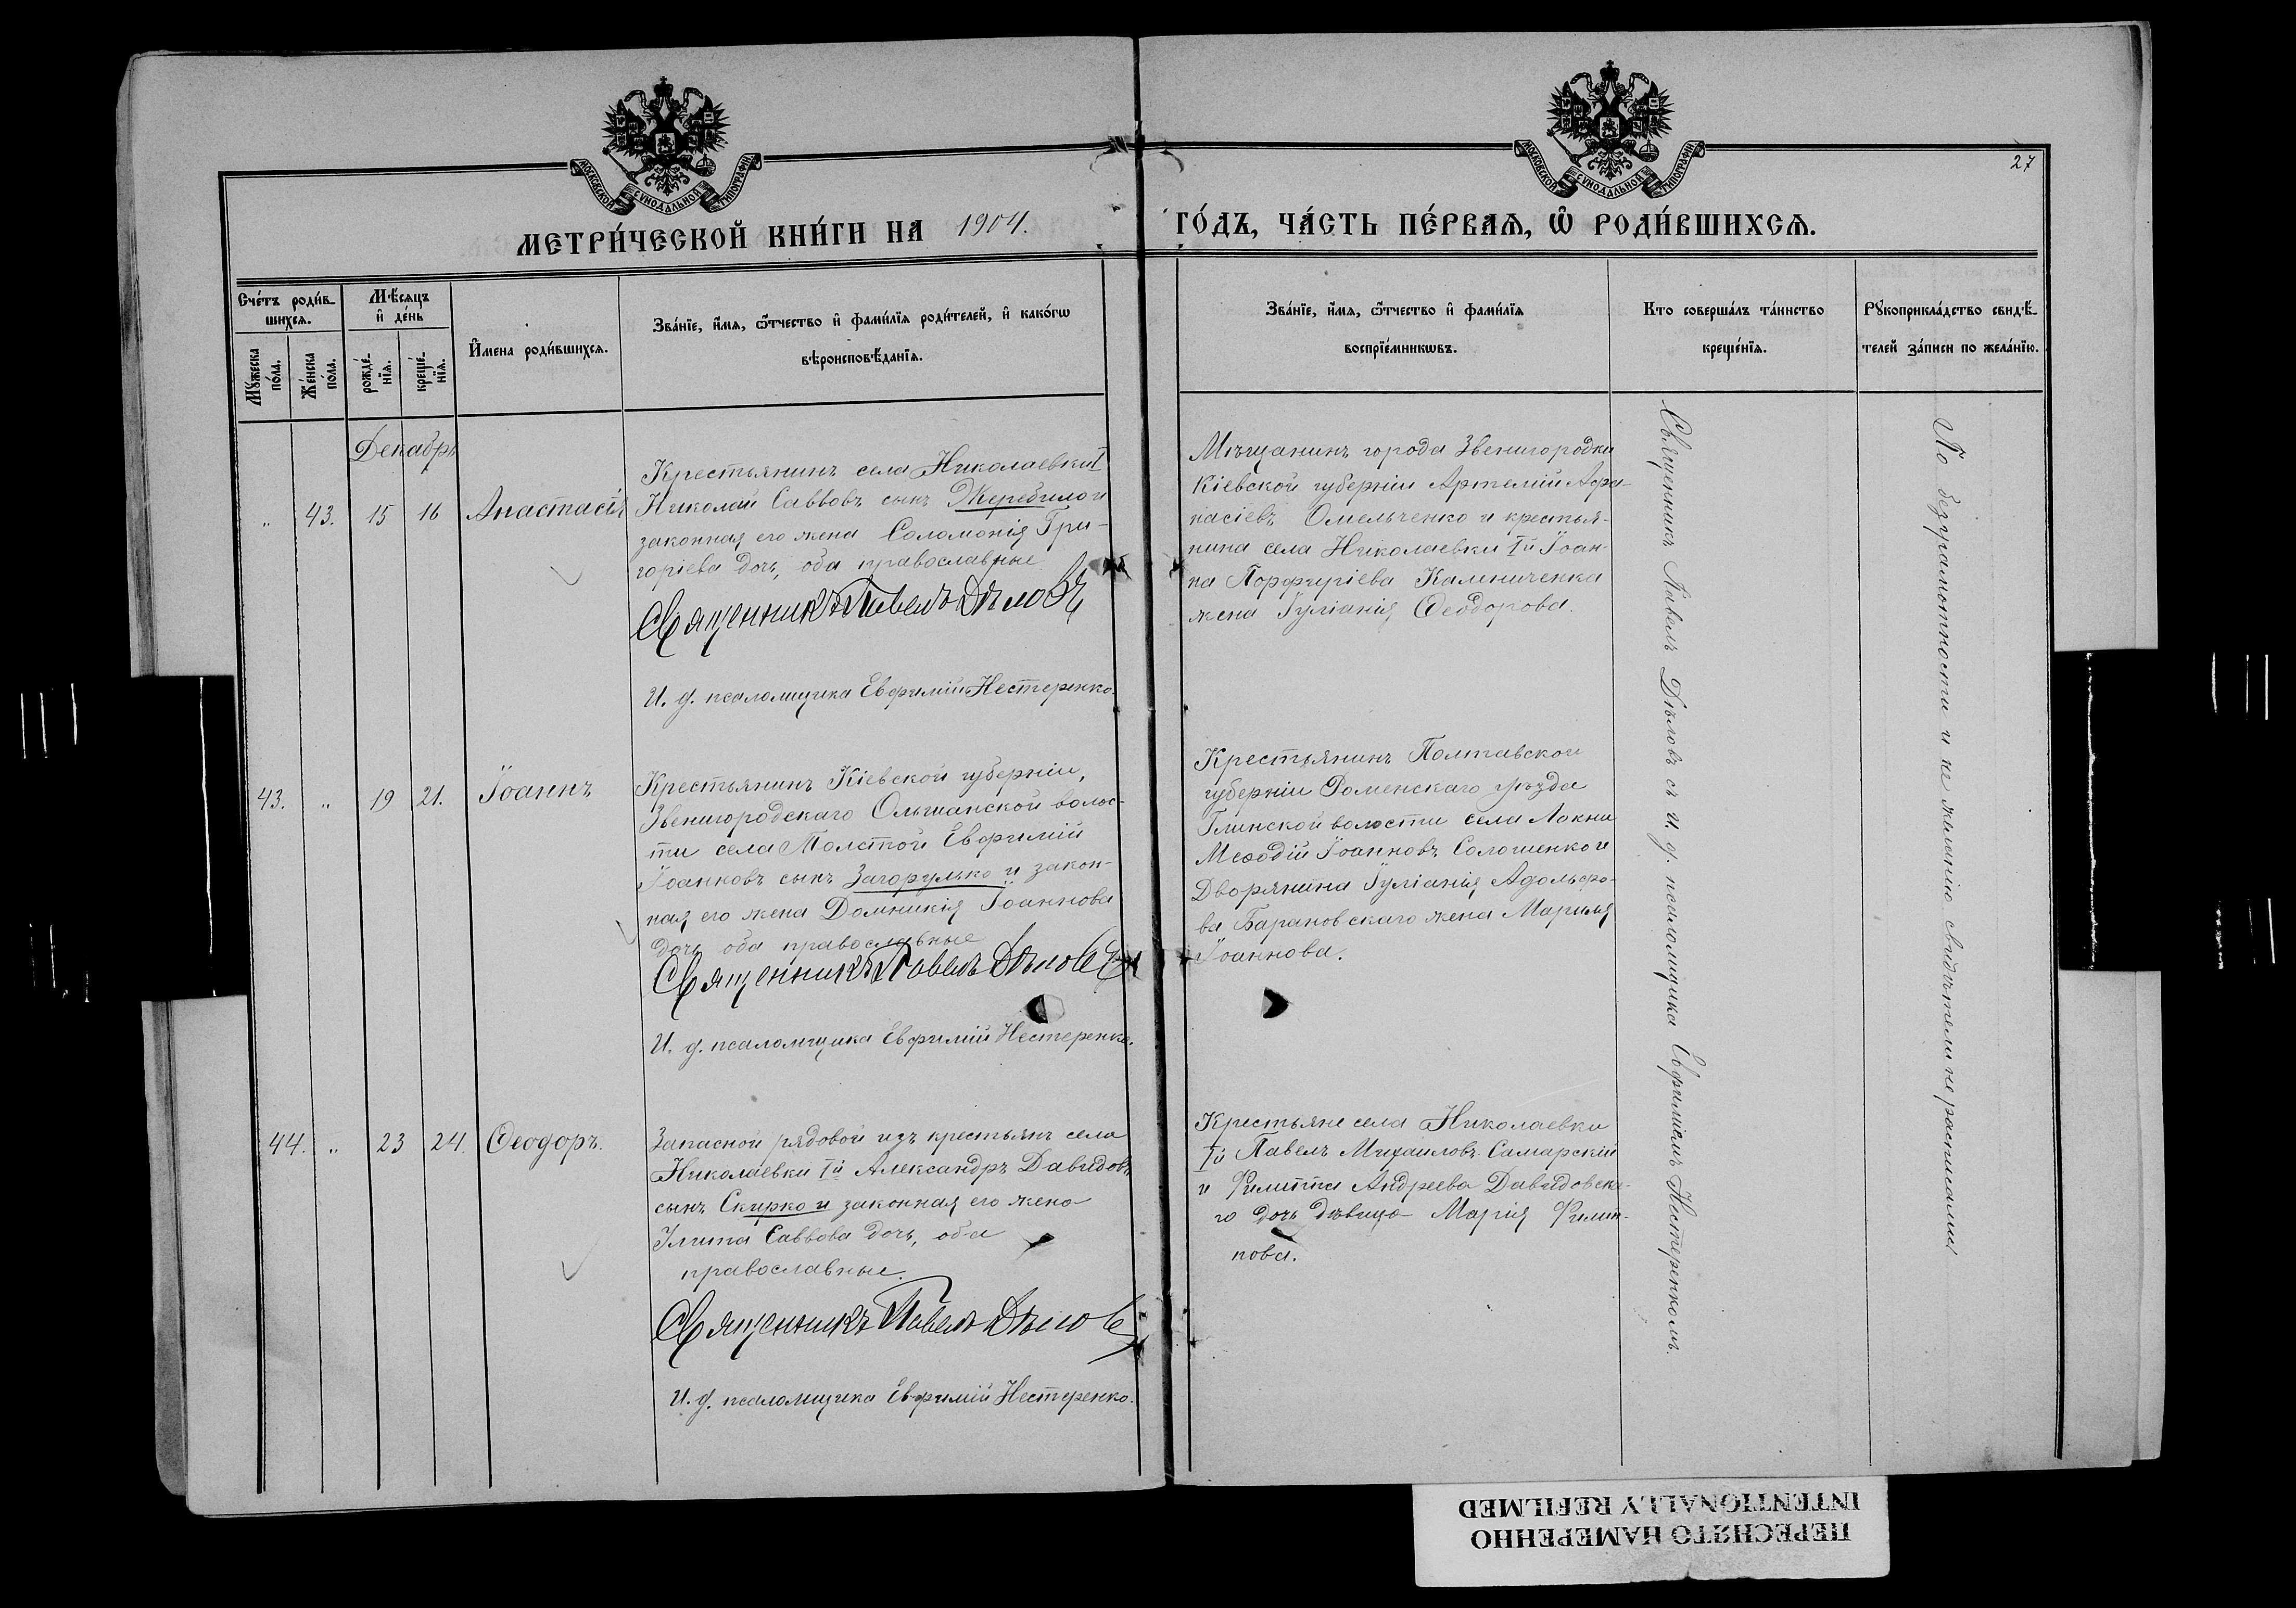 МОСКОВСКОЙ СѴНОДАЛЬНОЙ ТИПОГРАФІИ
МОСКОВСКОЙ СѴНОДАЛЬНОЙ ТИПОГРАФІИ
27
МЕТРИ́ЧЕСКОЙ КНИ́ГИ НА 1904.
ГО́ДЪ, ЧА́СТЬ ПЕ́РВАѦ, Ѡ РОДИ́ВШИХСѦ.
Сче́тъ роди́в-
шихсѧ.
Мꙋ́жеска
по́ла.
Же́нска
по́ла.
Мѣ́сѧцъ
и҆ де́нь
рожде́-
нїѧ.
креще́-
нїѧ.
И҆мена роди́вшихсѧ.
Зва́нїе, и҆́мѧ, ѻ҆́тчество и҆ фами́лїѧ роди́телей, и҆ како́гѡ
вѣроисповѣ́данїѧ.
Зва́нїе, и҆́мѧ, ѻ҆́тчество и҆ фами́лїѧ
воспрїе́мникѡвъ.
Кто соверша́лъ та́инство
креще́нїѧ.
Рꙋкоприкла́дство свидѣ́-
телей за́писи по жела́нїю.
Декабрь
" 43. 15 16 Анастасія
Крестьянинъ села Николаевки I
Николай Саввовъ сынъ Жеребило и
законная его жена Соломонія Гри-
горіева дочь, оба православные
Священникъ Павелъ Дѣловъ
И. д. псаломщика Евфимій Нестеренко.
Мѣщанинъ города Звенигородки
Кіевской губерніи Артемій Афа-
насіевъ Омельченко и крестья-
нина села Николаевки Iй Іоан-
на Порфиріева Калениченка
жена Іуліанія Ѳеодорова.
43. " 19 21. Іоаннъ
Крестьянинъ Кіевской губерніи,
Звенигородскаго Ольшанской волос-
ти села Толстой Евфимій
Іоанновъ сынъ Загорулько и закон-
ная его жена Домникія Іоаннова
дочь оба православные
Священникъ Павелъ Дѣловъ
И. д. псаломщика Евфимій Нестеренко.
Крестьянинъ Полтавской
губерніи Роменскаго уѣзда
Глинской волости села Локни
Меѳодій Іоанновъ Солошенко и
Дворянина Іуліанія Адольфо-
ва Барановскаго жена Марія
Іоаннова.
44. " 23 24. Ѳеодоръ.
Запасной рядовой изъ крестьянъ села
Николаевки Iй Александръ Давидовъ
сынъ Скирко и законная его жена
Улита Саввова дочь, оба
православные.
Священникъ Павелъ Дѣловъ
И. д. псаломщика Евфимій Нестеренко.
Крестьяне села Николаевки
Iй Павелъ Михаиловъ Самарскій
и Филиппа Андреева Давидовска-
го дочь дѣвица Марія Филип-
пова.
Священникъ Павелъ Дѣловъ съ и. д. псаломщика Евфиміемъ Нестеренкомъ.
По безграмотности и не желанію свидѣтели не росписались
ПЕРЕСНЯТО НАМЕРЕННО
INTENTIONALLY REFILMED